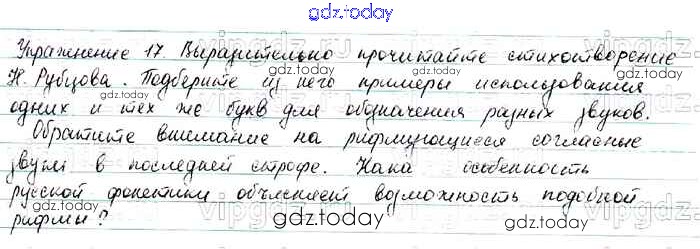 gdz.today
Упражнение 17. Выразительно прочитайте стихотворение
Н. Рубцова. Подберите из него примеры использования
одних и тех же букв для обозначения разных звуков.
Обратите внимание на рифмующиеся согласные
звуки в последней строфе. Кака особенность
русской фонетики объясняет возможность подобной
рифмы?
gdz.today